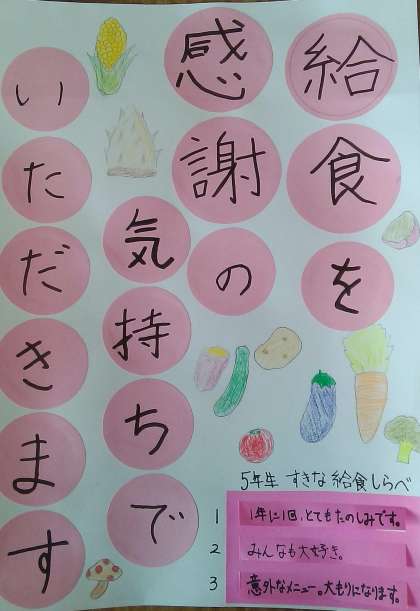 給食を
感謝の
気持ちで
いただきます
5年生 すきな給食しらべ
1 1年に1回、とてもたのしみです。
2 みんなも大好き。
3 意外なメニュー。大もりになります。